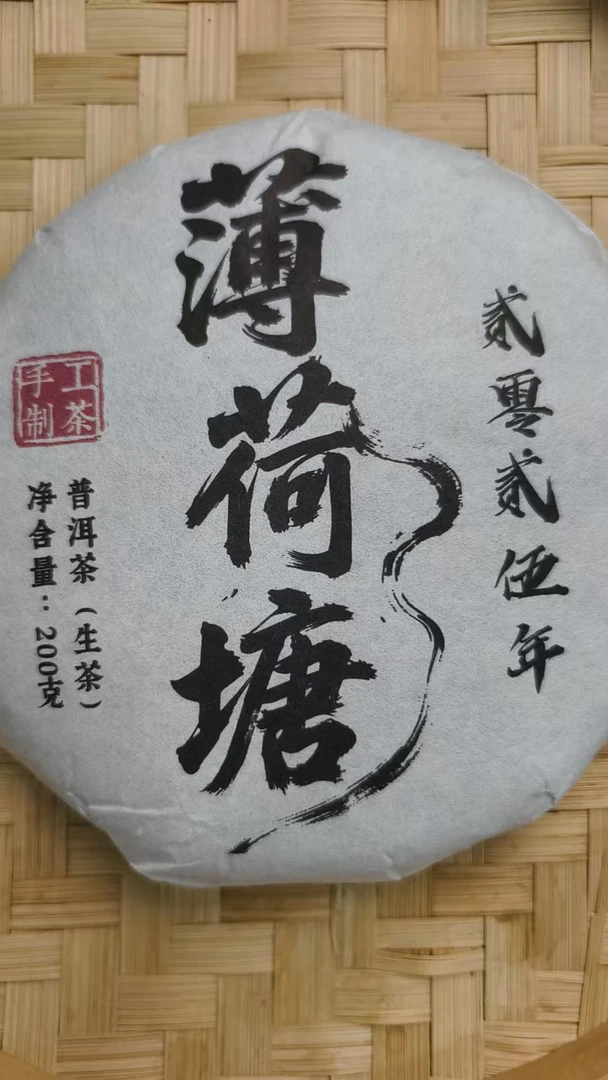 贰零贰伍年
薄荷塘
手工
制茶
普洱茶（生茶）
净含量：200克